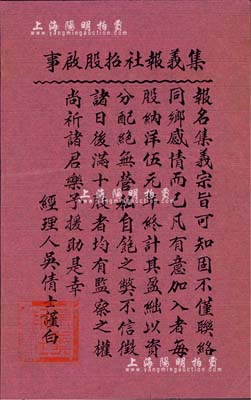 上海陽明拍賣
www.yangmingauction.com
集義報社招股啟事
報名集義宗旨可知固不僅聯絡
同鄉感情而已凡有意加入者每
股納洋伍元年終計其盈絀以資
分配絕無營私自飽之弊不信徵
諸日後滿十股者均有監察之權
尚祈諸君樂予援助是幸
經理人吳倩士謹白
上海陽明拍賣
www.yangmingauction.com